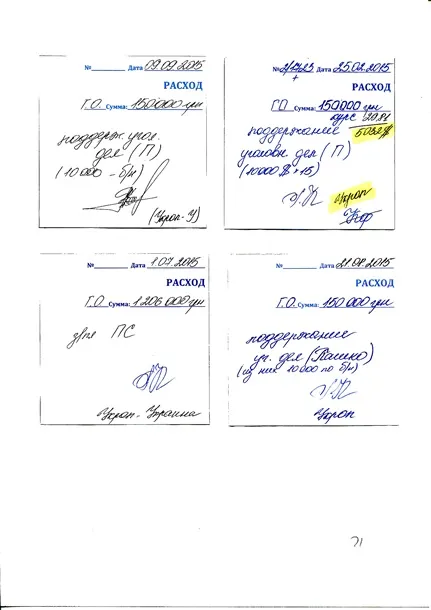 № Дата 09.09.2015
РАСХОД
Г.О. Сумма: 150000 грн
поддерж. угол.
дел (П)
(10 000 - б/н)
(Укроп-У)
№ Дата 25.02.2015
РАСХОД
ГО Сумма: 150000 грн
курс
поддержание
уголовн. дел (П)
Укроп
№ Дата 1.07.2015
РАСХОД
Г.О. Сумма: 1 206 000 грн
ПС
Укроп-Украина
№ Дата 21.08.2015
РАСХОД
Г.О. Сумма: 150 000 грн
поддержание
уг. дел
(из них 10 000 по б/н)
Укроп
71